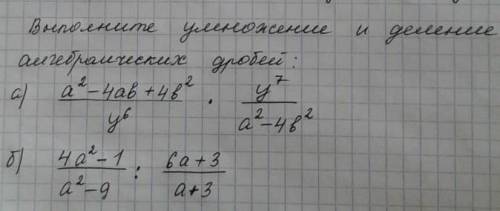 Выполните умножение и деление
алгебраических дробей:
а) (a² - 4ab + 4b²) / y⁶ · y⁷ / (a² - 4b²)
б) (4a² - 1) / (a² - 9) : (6a + 3) / (a + 3)